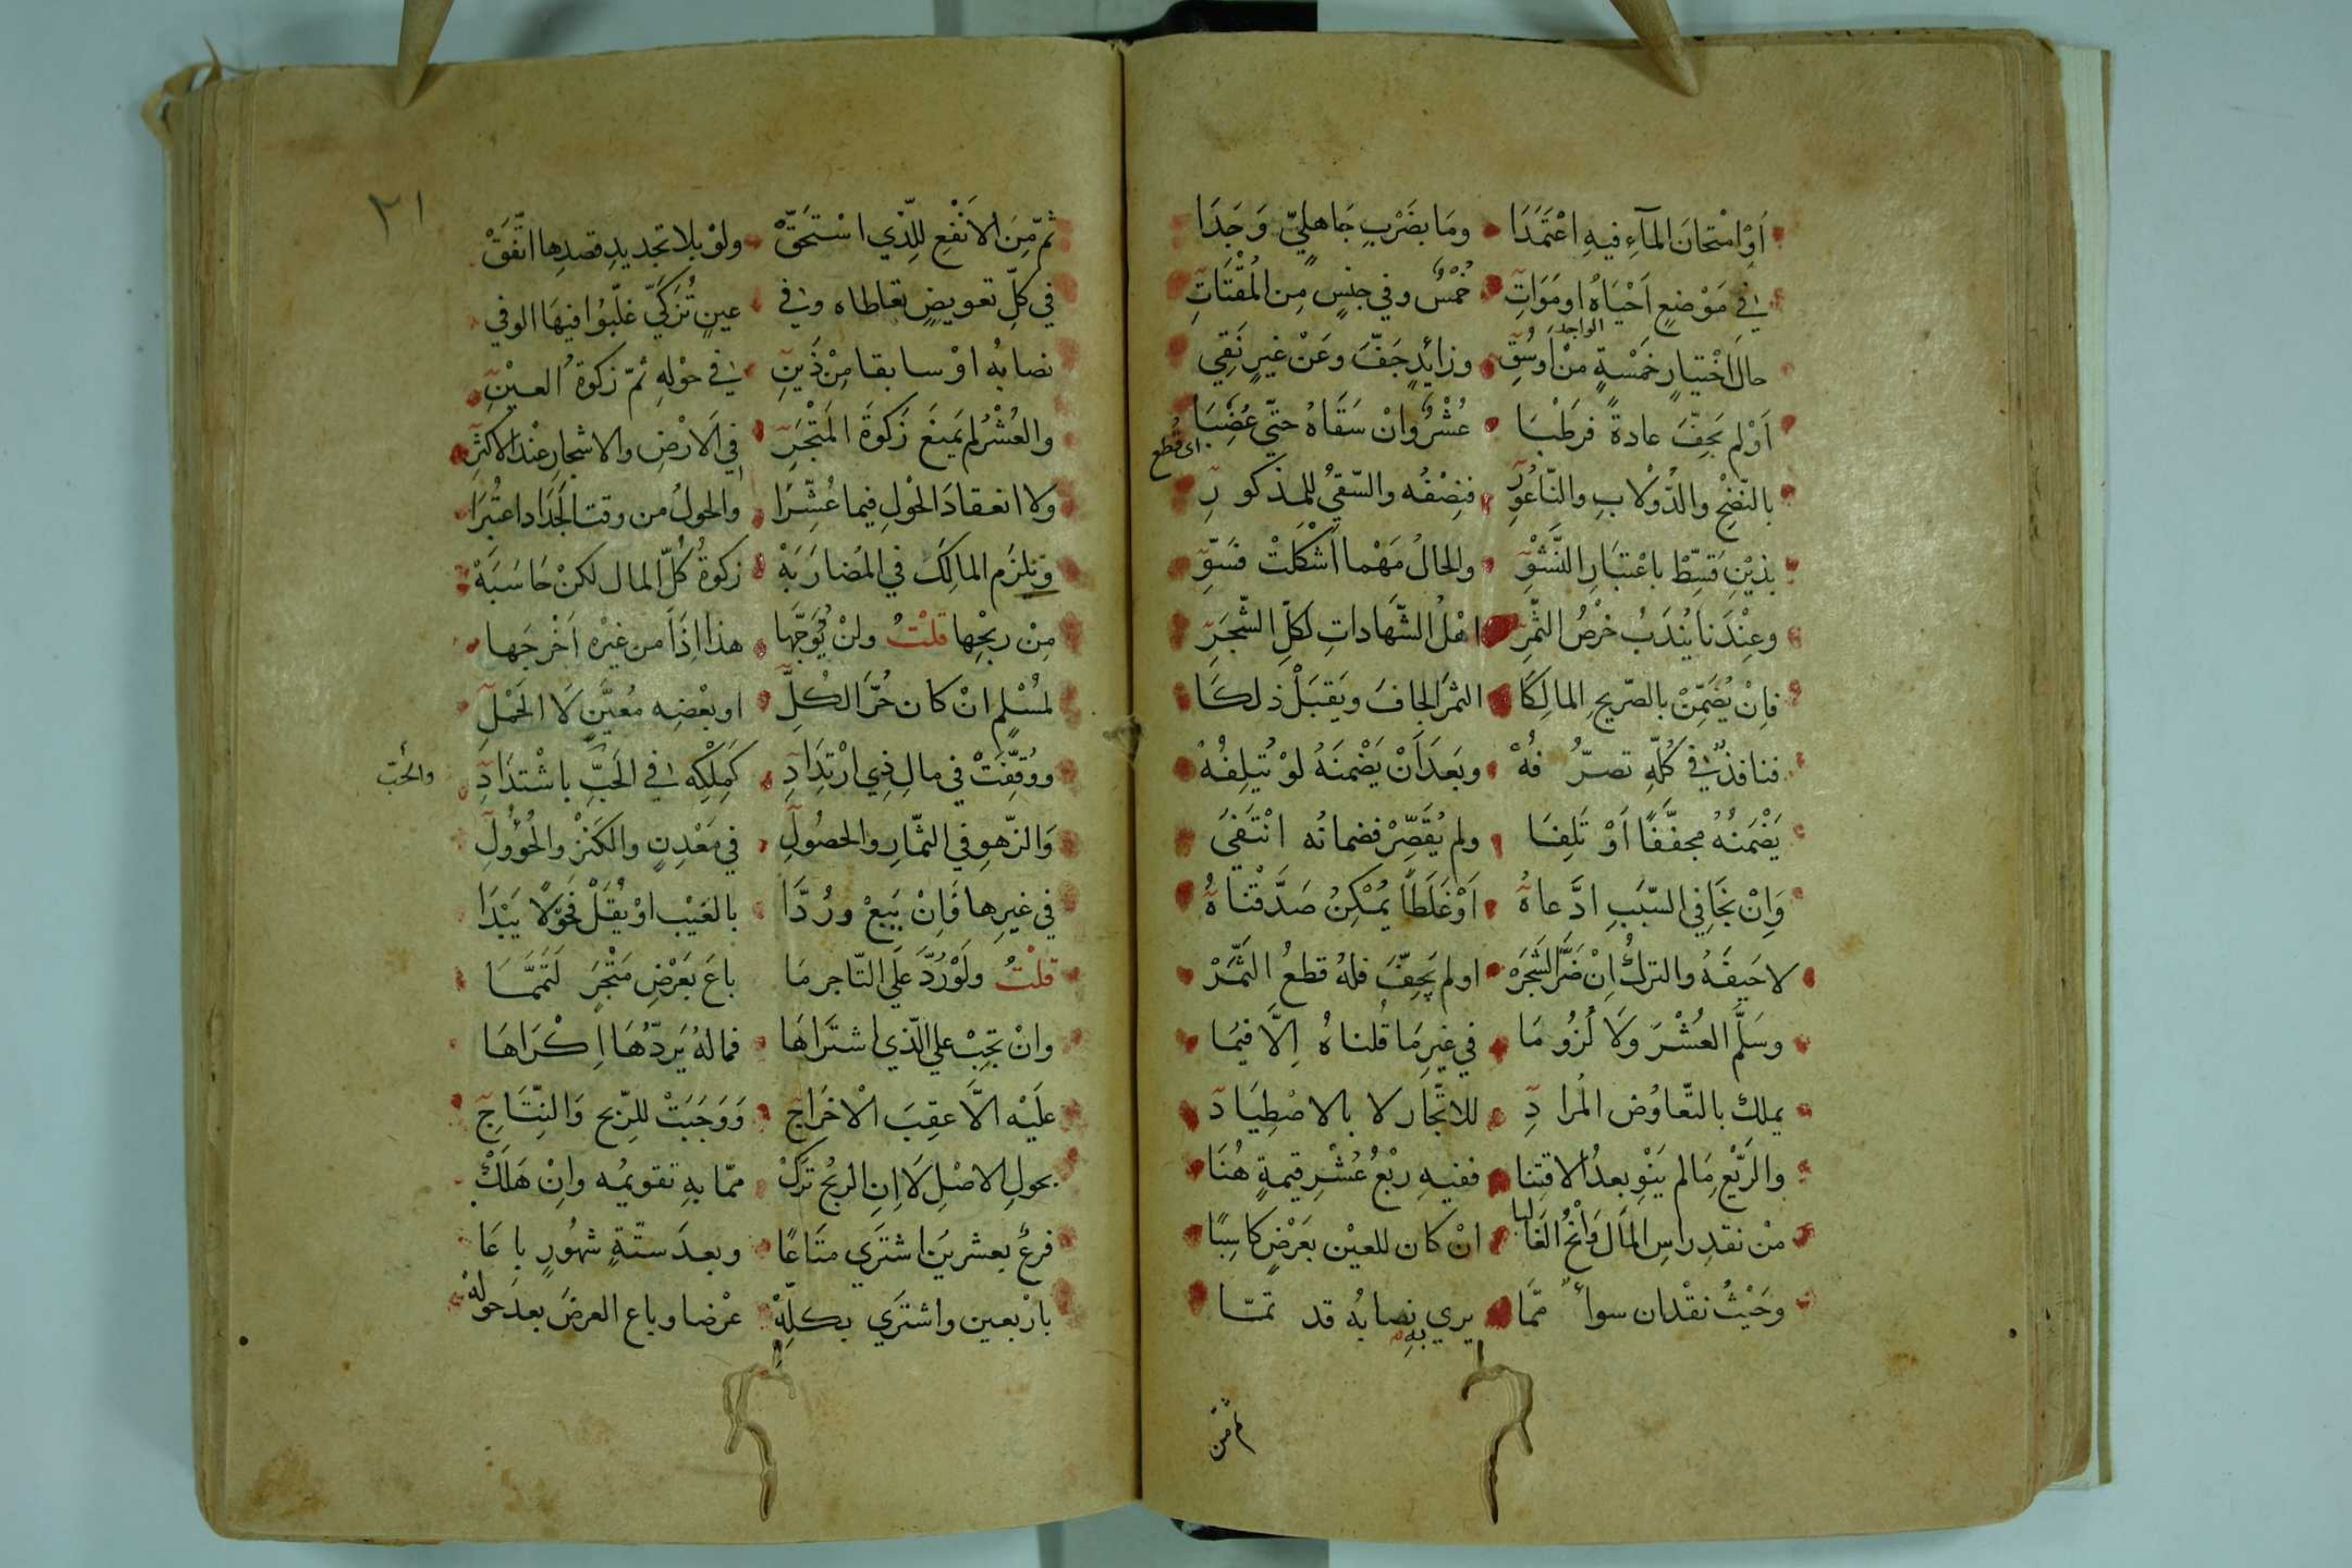 أَوْ امْتحَانَ المآءِ فيهِ اعْتَمَدَا ومَا بضَرْبٍ جَاهِليٍّ وَجَدَا
في مَوْضعٍ اَحْيَاهُ او مَوَاتِ خُمْسٌ وفي جنسٍ مِن المُقْتَاتِ
حالَ اخْتيارٍ خَمْسةٍ منْ اَوْسُقِ وزائدٍ جَفَّ وعَنْ غيرٍ نَقِي
الواجد
اَوْ لم يَجِفّ عادةً فرَطْبَا عُشْرٌ وانْ سَقَاهُ حتّى عُضِبَا
اى قُطع
بالنّضْحِ والدُّوْلابِ والنّاعُورِ فنِصْفُه والسّقيُ للمذكورِ
بذيْنِ قَسِّطْ باعْتبَارِ النَّشْوِ والحالُ مَهْما اَشْكَلَتْ فسَوِّ
وعِنْدَنا يُنْدَبُ خَرْصُ الثّمَرِ اهْلُ الشّهَاداتِ لكلِّ الشّجَرِ
فاِنْ يُضَمِّنْ بالصّريحِ المالِكَا الثمَرَ الجافَ ويَقبَلْ ذلكَا
فنافذٌ في كُلّهِ تصرّفُهْ وبَعدَ اَنْ يَضْمنَهُ لوْ يُتْلِفُهْ
يَضْمَنُهُ مجفَّفًا اَوْ تَلِفَا ولم يُقَصِّرْ فضمانُه انْتَفَى
وَاِنْ يَخَافِي السّبَبِ ادَّعاهُ اَوْ غَلَطًا يُمْكِنُ صَدَّقْنَاهُ
لا حَيفَهُ والتركُ اِنْ ضَرَّ الشَّجَرَهْ او لم يَجِفّ فلهُ قطعُ الثَّمَرْ
وسَلَّمَ العُشْرَ وَلَا لُزُومَا في غيرِ مَا قُلناهُ اِلَّا فيمَا
يملك بالتّعاوُض المُرادِ للاتّجار لا بالاصْطِيَادِ
والرّبْعِ مَا لم يَنْوِ بعدُ الاقتِنا ففيهِ ربْعُ عُشْرِ قيمةٍ هُنَا
منْ نقدِ راسِ المَال وَانْحُ الغَالبا انْ كان للعيْن بعَرْضٍ كاسِبًا
وحَيْثُ نقْدان سواءٌ ممّا يري نصابُه قد تمّا
به
ثم من
٢١
ثمّ مِنَ الاَنْفَعِ للِّذي اسْتَحَقّْ ولوْ بلا تجديدِ قصدِها اتّفَقْ
في كلِّ تعويضٍ تعاطاه وفي عينٍ تُزكّيَ غلّبُوا فيهَا الوفي
نصابُه اوْ سابقا مِنْ ذَيْنِ في حوْلهِ ثمّ زكوةُ العيْنِ
والعُشْرُ لم يَمنَعْ زَكوةَ المَتْجَرِ في الارْضِ والاشجارِ عنْدَ الاكثرِ
ولا انعقادَ الحَوْلِ فيما عُشِّرَا والحولُ من وقت الجَدَاد اعتُبِرَا
وتلزَمُ المالِكَ في المُضارَبَهْ زكوةُ كُلّ المال لكنْ حَاسَبَهْ
مِنْ ربْحِها قلْتُ ولنْ يُوَجّها هذا اِذَا من غيْرِه اَخْرَجَها
لمُسْلمٍ انْ كان حُرَّ الكُلِّ او بعْضِه مُعيَّنٍ لَا الحَمْلِ
ووُقِّفَتْ في مالِ ذِي ارْتِدَادِ كمِلْكِه في الحَبِّ باشْتدَادِ
والحبّ
وَالزّهوِ في الثّمَارِ والحصُولِ في مَعْدِنٍ والكَنْزِ والحُؤُولِ
في غيرِها فَاِنْ يَبِعْ ورُدَّا بالعَيْب اوْ يُقَلْ فَحَوْلًا يَبْدَا
قلْتُ ولَوْ رُدَّ عَلَى التّاجر مَا باعَ بعَرْضِ مَتْجَرٍ لَتَمَّمَا
وانْ تجِبْ علي الّذي اشتَرَاهَا فماله يَردّهَا اِكْرَاهَا
علَيْه الَّا عقِبَ الْاخْرَاجِ وَوَجَبَتْ للرِّبح وَالنِّتَاجِ
بحولِ الاصْلِ لَا اِنِ الربْح تُرَكْ ممّا بهِ تقويمُه وانْ هَلَكْ
فرعٌ بعشرينَ اشتَرَي متَاعًا وبعدَ ستّةٍ شهُورٍ باعَا
بارْبعين واشتَرَي بكلِّهْ عرْضا وباع العرضَ بعدَ حولهْ